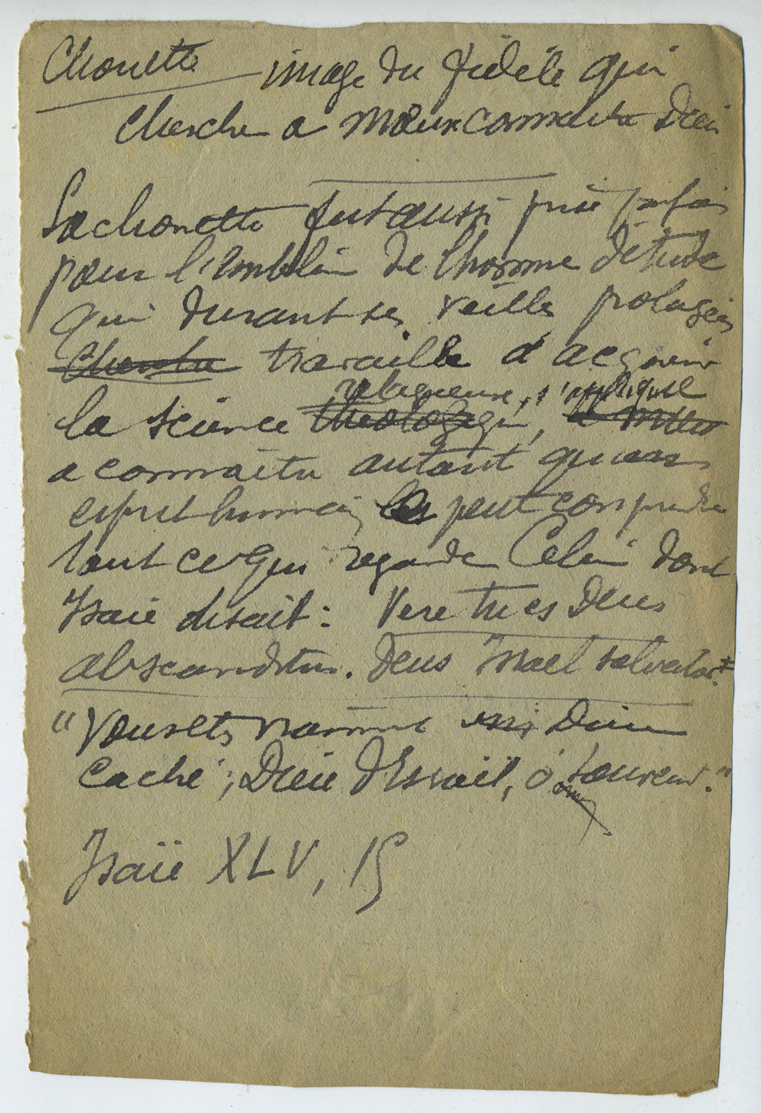 Chouette image du fidèle qui
cherche a mieux connaitre Dieu
La chouette fut aussi prise parfois
pour l'emblème de l'homme d'étude
qui durant ses veilles prolongées
cherche travaille d'acquérir
religieuse, s'applique
la science théologique,
a connaitre autant qu'un
esprit humain les peut comprendre
tout ce qui regarde Celui dont
Isaïe disait: Vere tu es Deus
absconditus. Deus Israel salvator.
"Vous êtes vraiment un Dieu
caché; Dieu d'Israël, ô Sauveur."
Isaïe XLV, 15